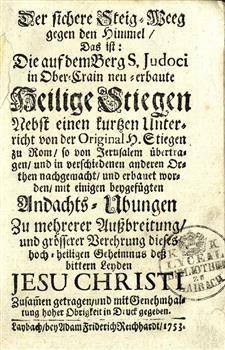 Der sichere Steig-Weeg
gegen den Himmel /
Das ist:
Die auf dem Berg S. Judoci
in Ober-Crain neu-erbaute
Heilige Stiegen
Nebst einen kurtzen Unter-
richt von der Original H. Stiegen
zu Rom / so von Jerusalem übertra-
gen / und in verschiedenen anderen Or-
then nachgemacht / und erbauet wor-
den / mit einigen beygefügten
Andachts-Ubungen
Zu mehrerer Außbreitung /
und grösserer Verehrung dieses
hoch-heiligen Geheimnus deß
bittern Leyden
JESU CHRISTI
Zusam̅en getragen / und mit Genehmhal-
tung hoher Obrigkeit in Druck gegeben.
Laybach / bey Adam Friderich Reichhardt / 1753.